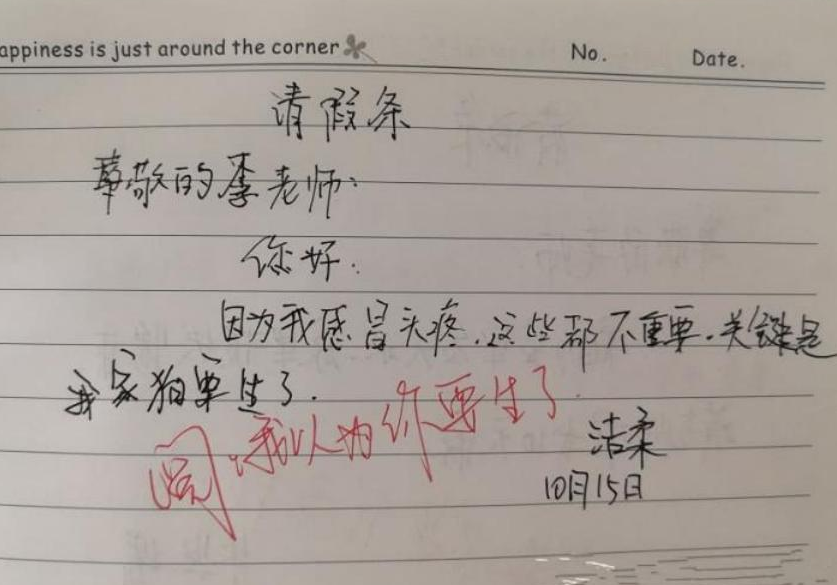 appiness is just around the corner No. Date.
请假条
尊敬的李老师:
你好.
因为我感冒头疼.这些都不重要.关键是
我家狗要生了.
滚,我以为你要生了.
洁柔
10月15日